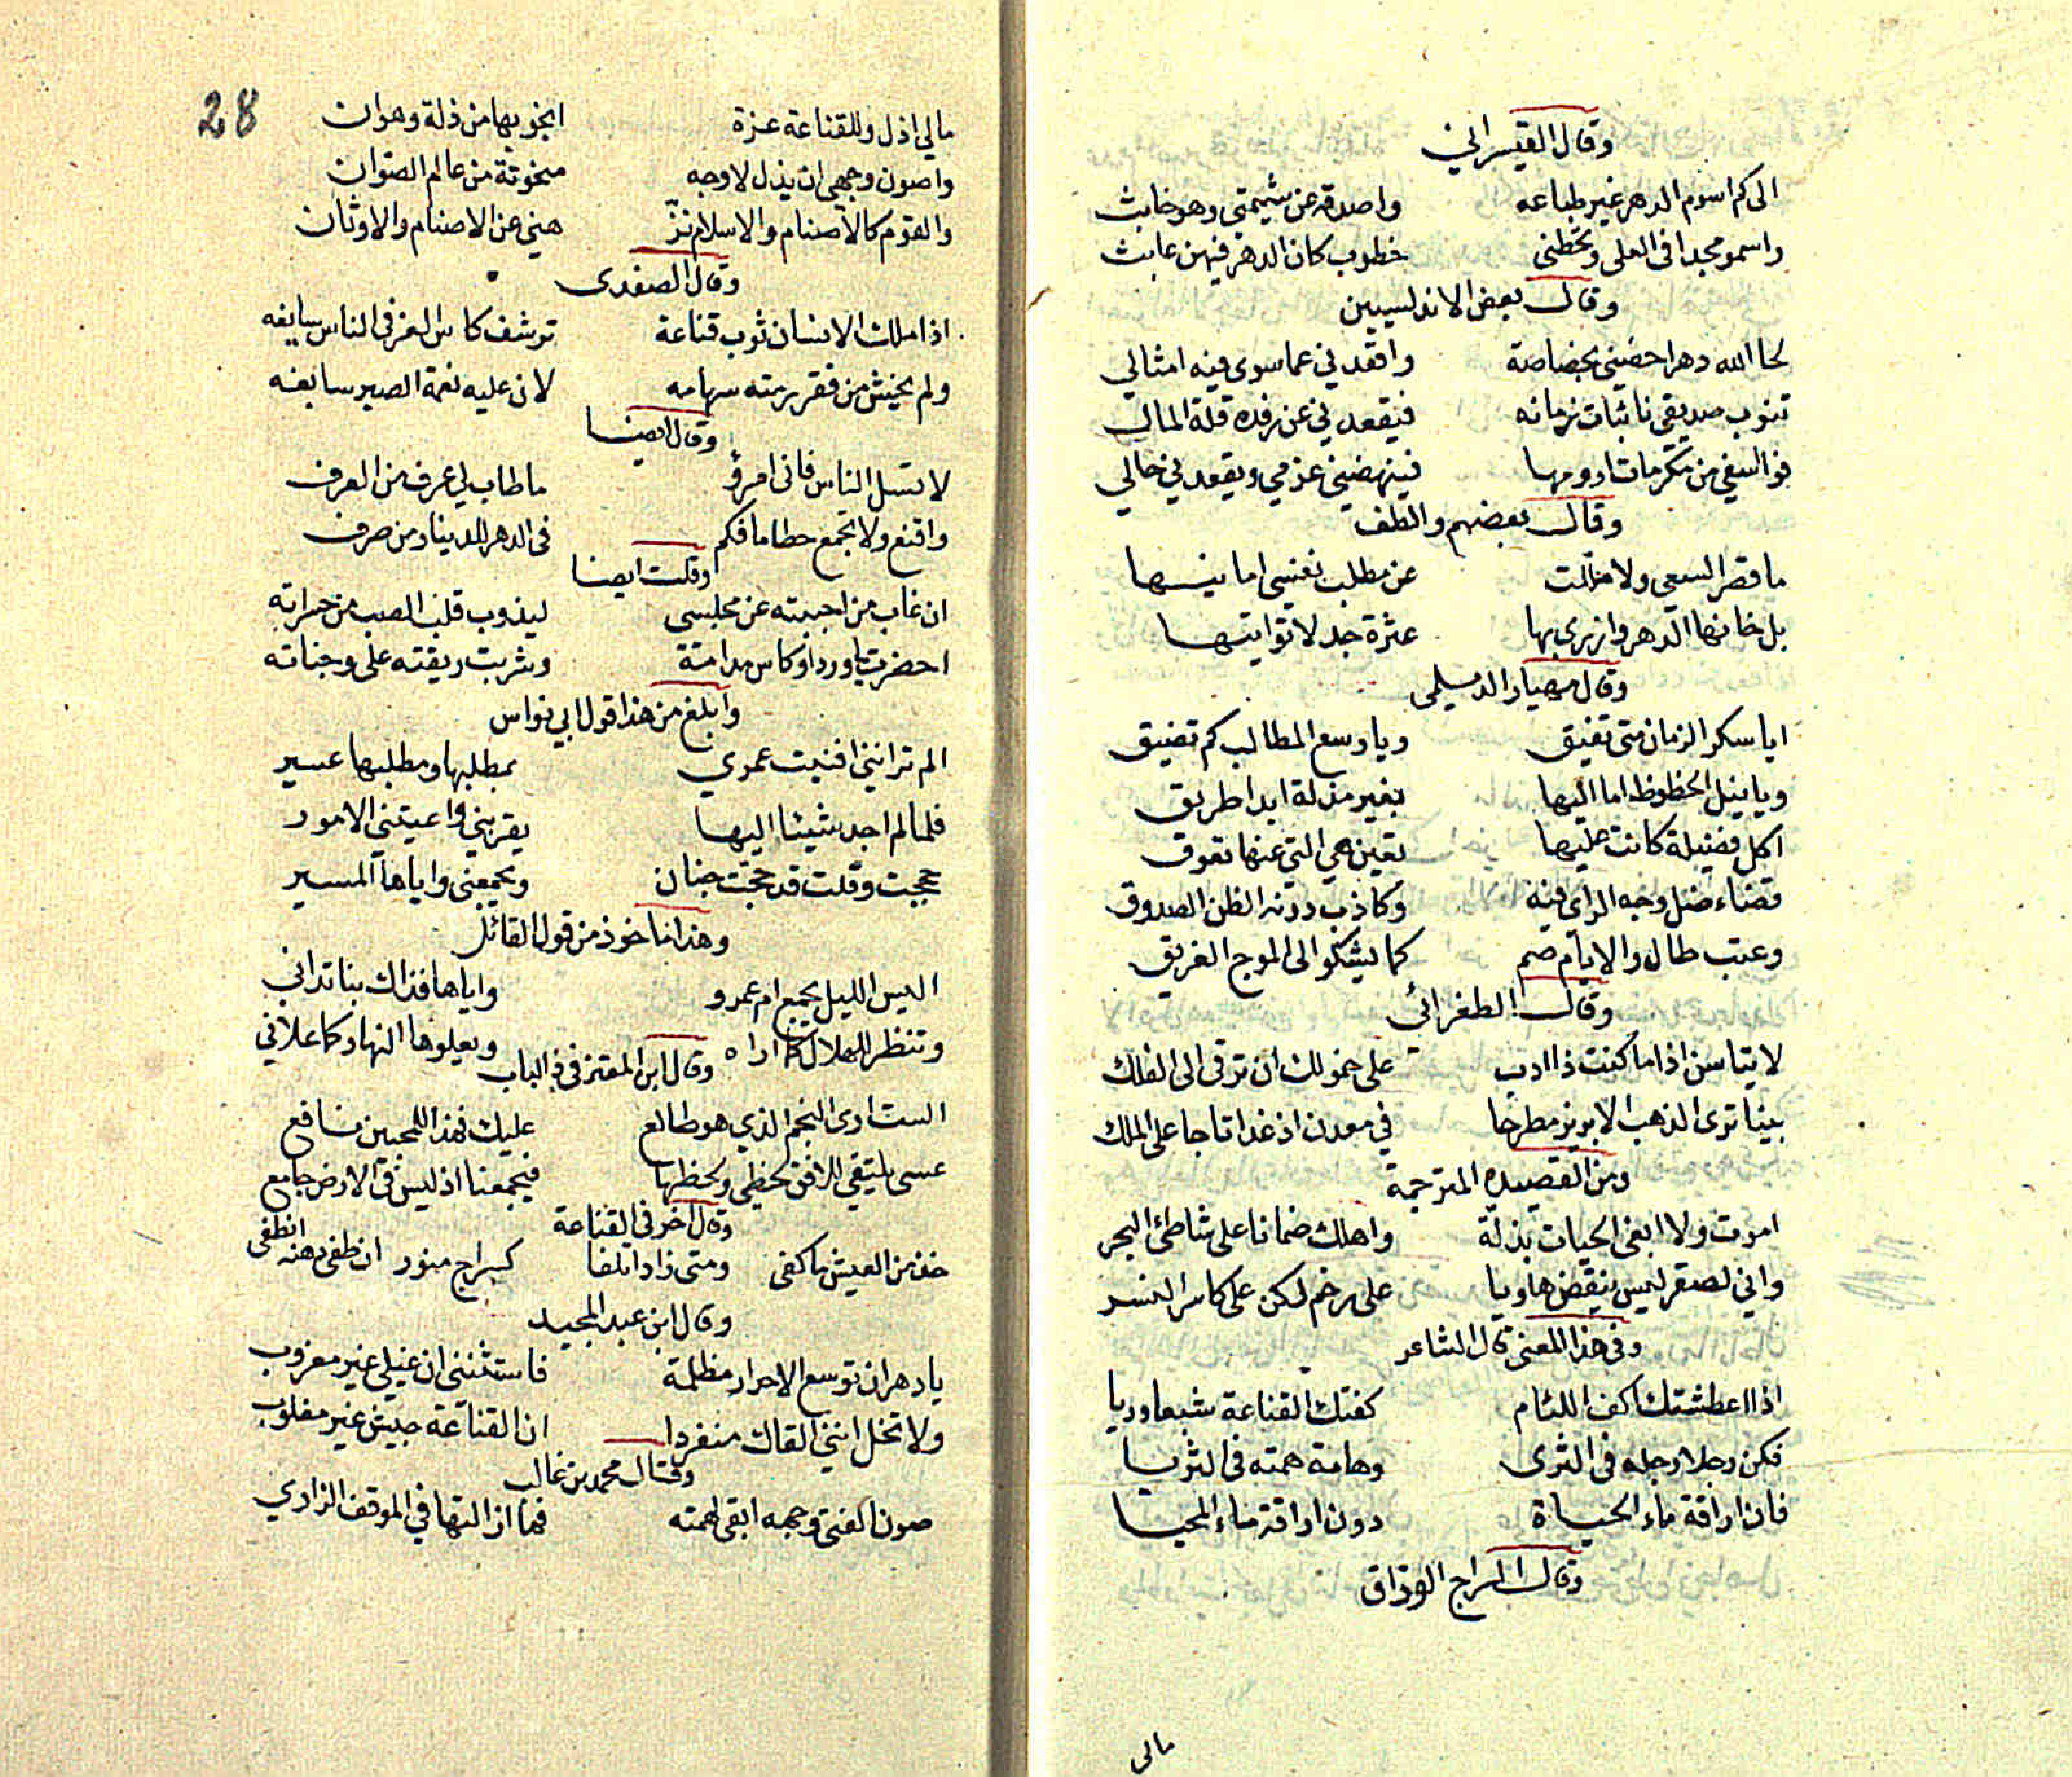 وقال القيسراني
الى كم اسوم الدهر غير طباعه واصدقه عن شيمتي وهو خابث
واسمو مجدا فى العلى وتحطنى خطوب كان الدهر فيهن عابث
وقال بعض الاندلسيين
لحا الله دهرا خصنى بخصاصة وافقدني عما سوى فيه امثالي
تنوب صديقى نائبات زمانه فيقعدني عن رفده قلة المال
فوا اسفي من مكرمات ارومها فينهضني عزمي ويقعدني حالي
وقال بعضهم والطف
ما قصر السعي ولا عن مطلب نفسى امانيها
بل خانها الدهر وازرى بها عثرة جد لا تواتيها
وقال مهيار الديلمى
ايا سكر الزمان متى تفيق ويا وسع المطالب كم تضيق
ويا نيل الحظوظ اما اليها بغير مذلة ابدا طريق
اكل فضيلة كانت عليها تعين هي التي عنها تعوق
قضاء ضل وجه الراى فيه وكاذب دونه الظن الصدوق
وعتب طال والايام صم كما يشكو الى الموج الغريق
وقال الطغرائى
لا تياسن اذا ما كنت ذا ادب على خمولك ان ترقى الى الفلك
بينا ترى الذهب الابريز مطرحا في معدن اذ غدا تاجا على الملك
ومن القصيدة المترجمة
اموت ولا ابغى الحيات بذلة واهلك ضمانا على شاطئ البحر
واني لصقر ليس ينقض هاويا على رخم لكن على كاسر النسر
وفى هذا المعنى قال الشاعر
اذا اعطشتك اكف اللئام كفتك القناعة شبعا وريا
فكن رجلا رجله فى الثرى وهامة همته فى الثريا
فان اراقة ماء الحياة دون اراقة ماء المحيا
وقال السراج الوراق
مالى
28
مالي اذل وللقناعة عزة انجو بها من ذلة وهوان
واصون وجهى ان يذل لاوجه منحوتة من عالم الصوان
والقوم كالاصنام والاسلام نز هني عن الاصنام والاوثان
وقال الصفدى
اذا ملك الانسان ثوب قناعة ترشف كاس العز فى الناس سايغه
ولم يخش من فقر رمته سهامه لان عليه نعمة الصبر سابغه
وقال ايضا
لا تسل الناس فانى امرؤ ما طاب لي عرف من العرف
واقنع ولا تجمع حطاما فكم فى الدهر للدينار من صرف
وقلت ايضا
ان غاب من احببته عن مجلسى ليذوب قلب الصب من حسراته
احضرت يا ورد او كاس مدامة وشربت ريقته على وجناته
وابلغ من هذا قول ابي نواس
الم تر انني افنيت عمري بمطلبها ومطلبها عسير
فلما لم اجد شيئا اليها يقربني واعيتني الامور
حججت وقلت قد حجت جنان ويجمعنى واياها المسير
وهذا ماخوذ من قول القائل
اليس الليل يجمع ام عمرو واياها فذاك بنا تدانى
وتنظر للهلال كما اراه ويعلوها النهار كما علاني
وقال ابن المعتز فى ذ الباب
الست ارى النجم الذي هو طالع عليك فهذا للمحبين نافع
عسى يلتقي للافق لحظي ولحظها فيجمعنا اذ ليس فى الارض جامع
وقال اخر فى القناعة
خذ من العيش ما كفى ومتى زاد اتلفا كسراج منور ان طفى دهنه انطفى
وقال ابن عبد المجيد
يا دهر ان توسع الاحرار مظلمة فاستثننى ان غيلى غير مقروب
ولا تخل انني القاك منفردا ان القناعة جيش غير مغلوب
وقال محمد بن غالب
صون الفتى وجهه ابقى لهمته فما ازالتها في الموقف الزاري